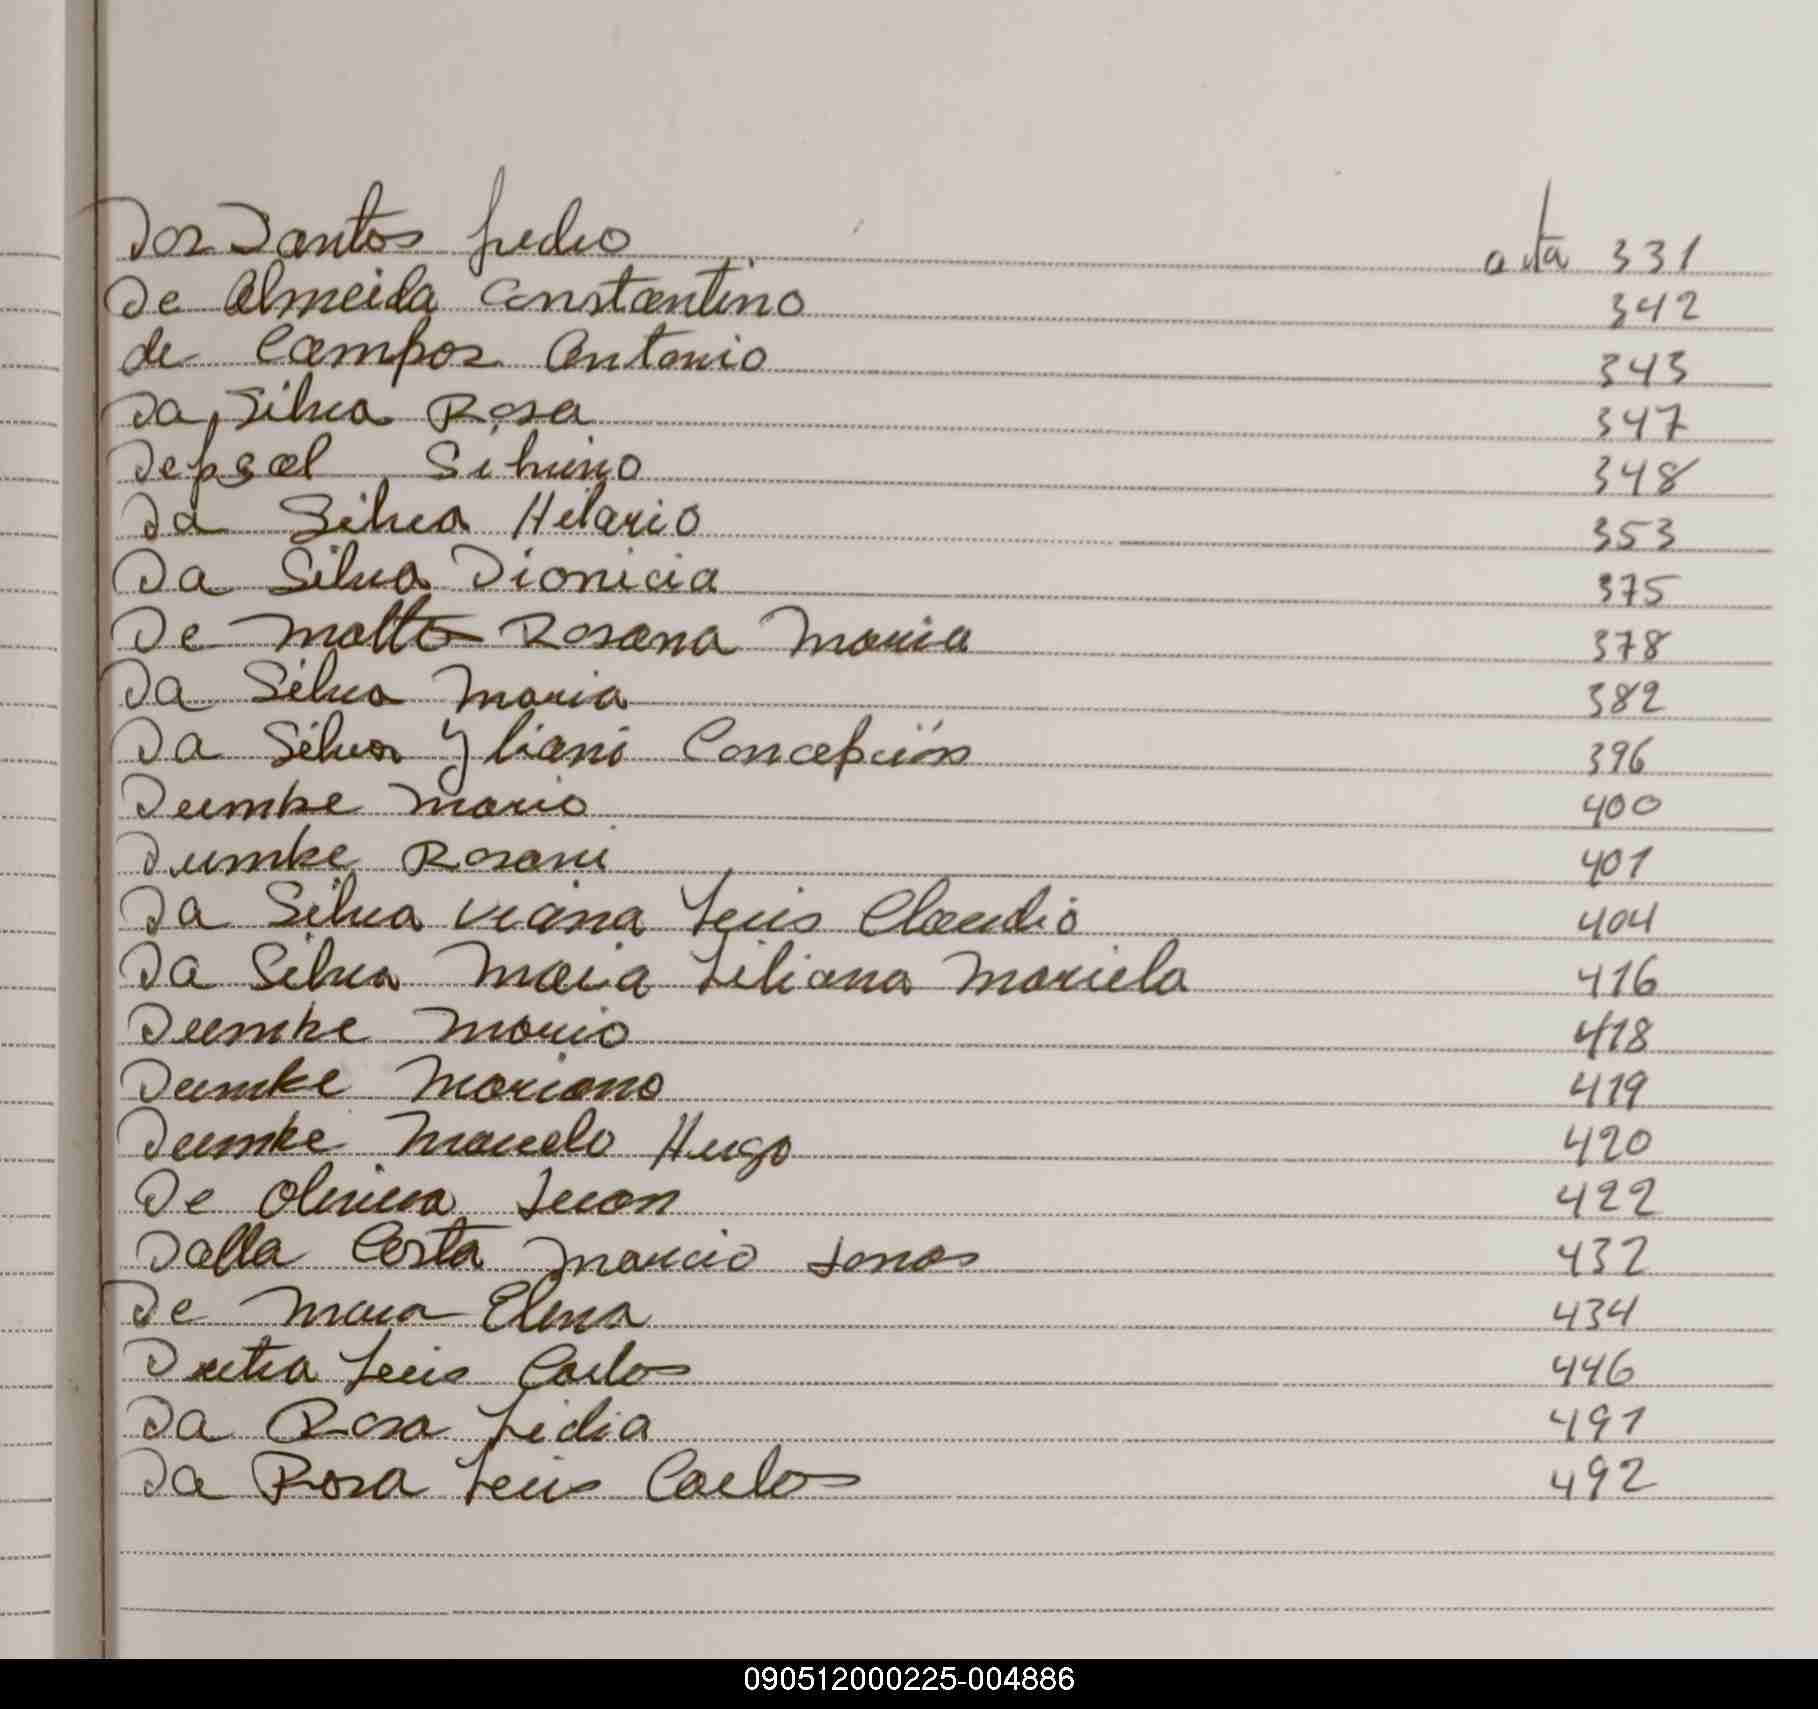 Dos Santos Pedro acta 331
De Almeida Constantino 342
de Campos Antonio 343
Da Silva Rosa 347
Depgel Silvino 348
Da Silva Hilario 353
Da Silva Dionicia 375
De Motta Rosana Maria 378
Da Silva Maria 382
Da Silva y liani Concepción 396
Dumke Mario 400
Dumke Rosani 401
Da Silva Viana Luis Claudio 404
Da Silva Maia Liliana Mariela 416
Dumke Mario 418
Dumke Mariano 419
Dumke Marcelo Hugo 420
De Olivera Juan 422
Dalla Costa Marcio Jonas 432
De Mara Elena 434
Dutra Luis Carlos 446
Da Rosa Lidia 491
Da Rosa Luis Carlos 492
090512000225-004886